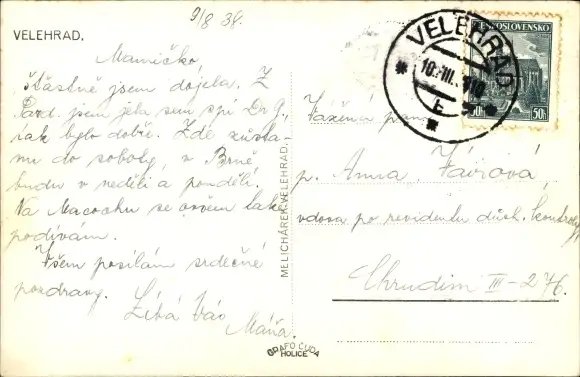 9/8 38.
VELEHRAD.
Mamičko,
štastně jsem dojela. Z
Pard. jsem jela sem s pí Dr G.,
tak bylo dobře. Zde zůsta-
nu do soboty, v Brně
budu v neděli a pondělí.
Na Macochu se ovšem také
podívám.
Všem posílám srdečné
pozdravy. Líbá Vás
Máňa.
MELICHÁREK, VELEHRAD.
GRAFO ČUDA
HOLICE
VELEHRAD
ČESKOSLOVENSKO
50h 50h
Vážená paní
p. Anna Vávrová,
vdova po revidentu důch. kontroly
Chrudim III - 276.